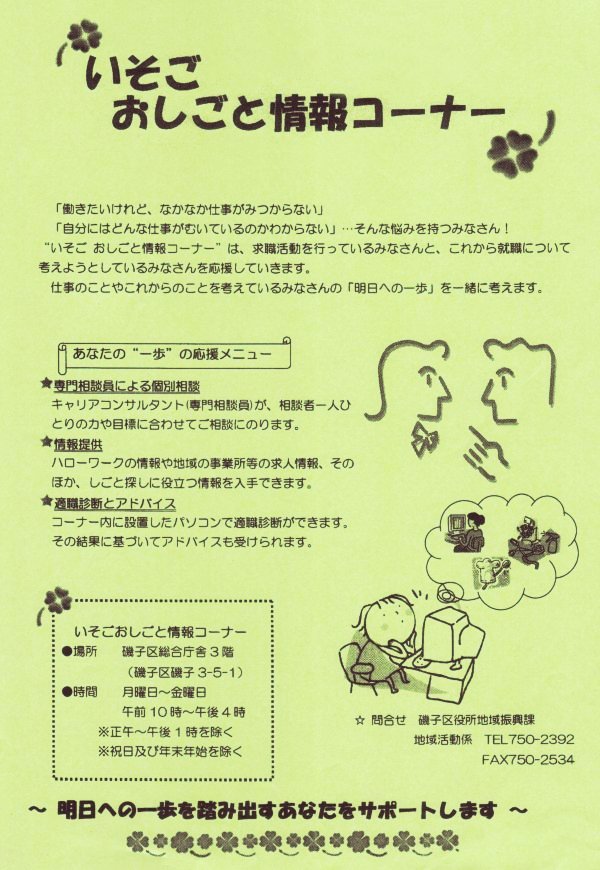 いそご
おしごと情報コーナー
「働きたいけれど、なかなか仕事がみつからない」
「自分にはどんな仕事がむいているのかわからない」…そんな悩みを持つみなさん！
“いそご おしごと情報コーナー”は、求職活動を行っているみなさんと、これから就職について
考えようとしているみなさんを応援していきます。
仕事のことやこれからのことを考えているみなさんの「明日への一歩」を一緒に考えます。
あなたの“一歩”の応援メニュー
★専門相談員による個別相談
キャリアコンサルタント(専門相談員)が、相談者一人ひ
とりの力や目標に合わせてご相談にのります。
★情報提供
ハローワークの情報や地域の事業所等の求人情報、その
ほか、しごと探しに役立つ情報を入手できます。
★適職診断とアドバイス
コーナー内に設置したパソコンで適職診断ができます。
その結果に基づいてアドバイスも受けられます。
いそごおしごと情報コーナー
●場所　磯子区総合庁舎３階
（磯子区磯子 3-5-1）
●時間　月曜日～金曜日
午前 10 時～午後４時
※正午～午後１時を除く
※祝日及び年末年始を除く
☆ 問合せ　磯子区役所地域振興課
地域活動係　TEL750-2392
FAX750-2534
～ 明日への一歩を踏み出すあなたをサポートします ～